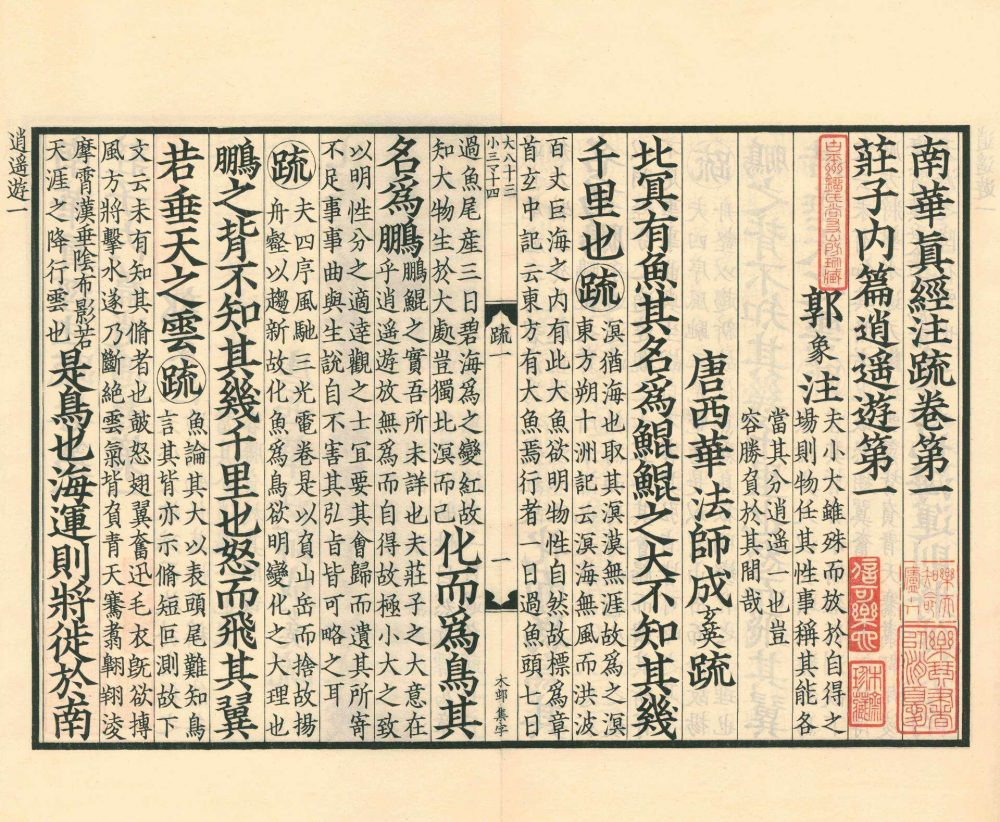 南華真經注疏卷第一
莊子內篇逍遙遊第一
郭象注
夫小大雖殊而放於自得之
場則物任其性事稱其能各
當其分逍遙一也豈
容勝負於其間哉
唐西華法師成玄英疏
北冥有魚其名爲鯤鯤之大不知其幾
千里也疏
溟猶海也取其溟漠無涯故爲之溟
東方朔十洲記云溟海無風而洪波
百丈巨海之內有此大魚欲明物性自然故標爲章
首玄中記云東方有大魚焉行者一日過魚頭七日
大八十三
疏一
一
木邨集字
過魚尾產三日碧海爲之變紅故
知大物生於大處豈獨北溟而已
化而爲鳥其
名爲鵬
鵬鯤之實吾所未詳也夫莊子之大意在
乎逍遙遊放無爲而自得故極小大之致
以明性分之適達觀之士宜要其會歸而遺其所寄
不足事事曲與生說自不害其弘旨皆可略之耳
疏
夫四序風馳三光電卷是以負山岳而捨故揚
舟壑以趨新故化魚爲鳥欲明變化之大理也
鵬之背不知其幾千里也怒而飛其翼
若垂天之雲疏
魚論其大以表頭尾難知鳥
言其背亦示脩短叵測故下
文云未有知其脩者也鼓怒翅翼奮迅毛衣旣欲摶
風方將擊水遂乃斷絕雲氣背負青天騫翥翱翔淩
摩霄漢垂陰布影若
天涯之降行雲也
是鳥也海運則將徙於南
逍遙遊一